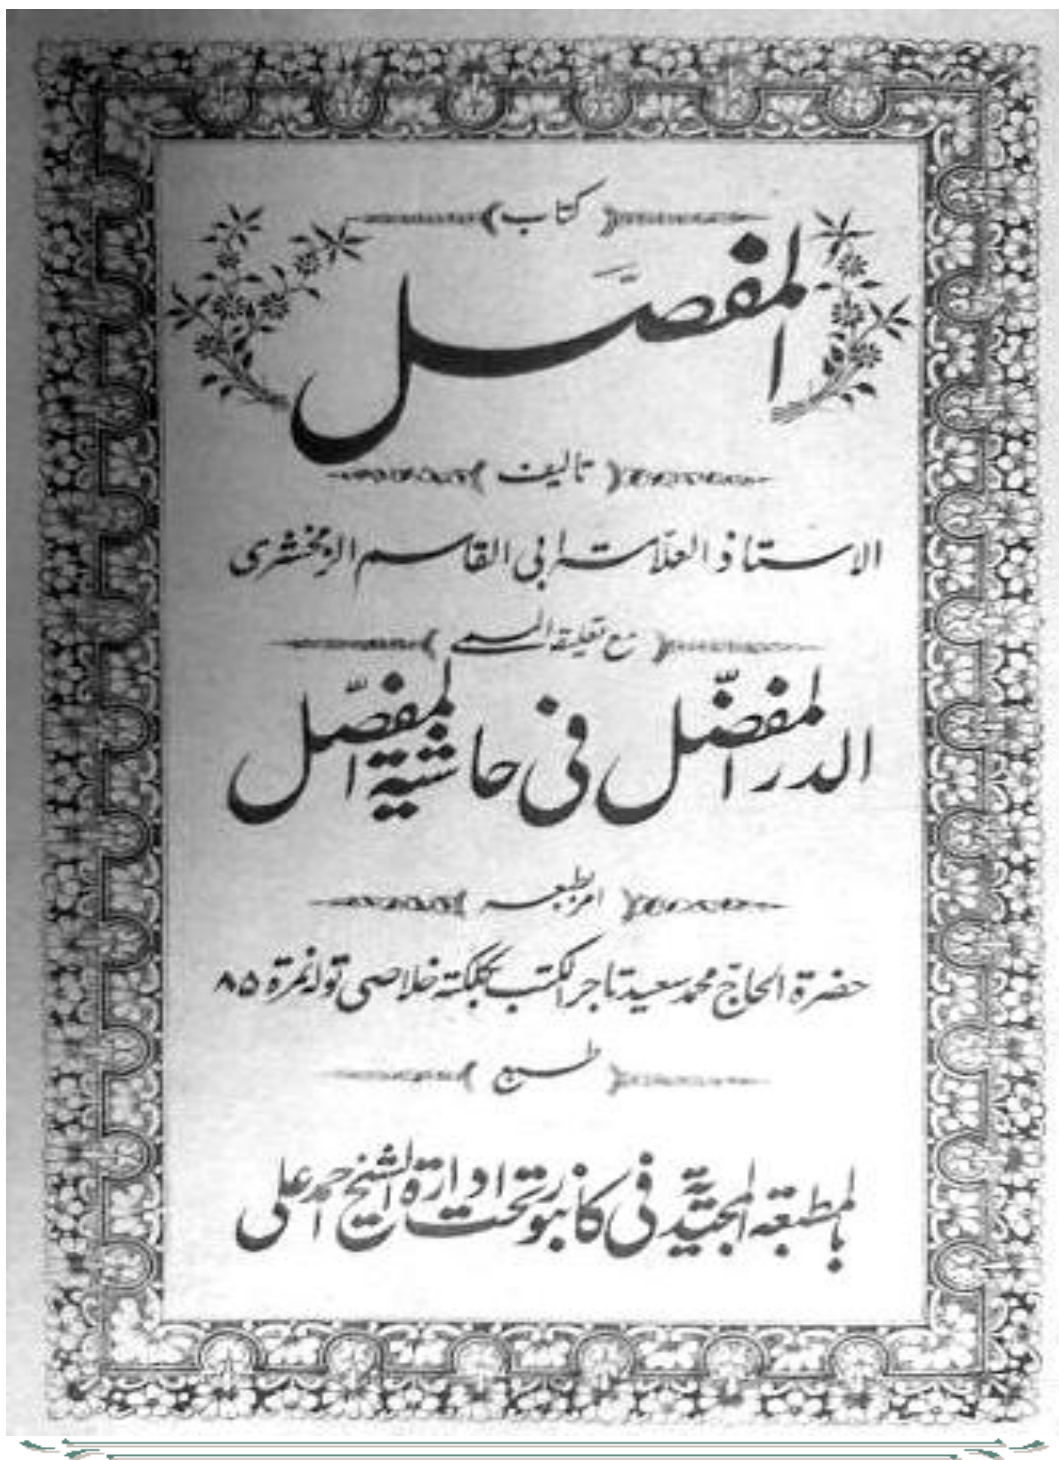 كتاب
المفصّل
تاليف
الاستاذ العلّامة ابى القاسم الزمخشرى
مع تعليقه المسمى
الدر المفضّل فى حاشية المفصّل
امر بطبعه
حضرة الحاجّ محمد سعيد تاجر الكتب بكلكته خلاصى توله نمرة ٨٥
طبع
بالمطبعة المجيدية فى كانبور تحت ادارة الشيخ احمد على